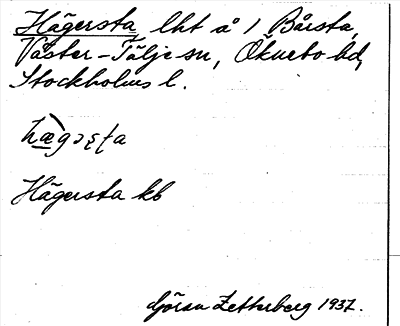 Hägersta, lht å 1 Bårsta,
Väster-Tälje sn, Öknebo hd,
Stockholms l.
hæ̀gəʂʈa
Hägersta kb
Göran Zetterberg 1937.